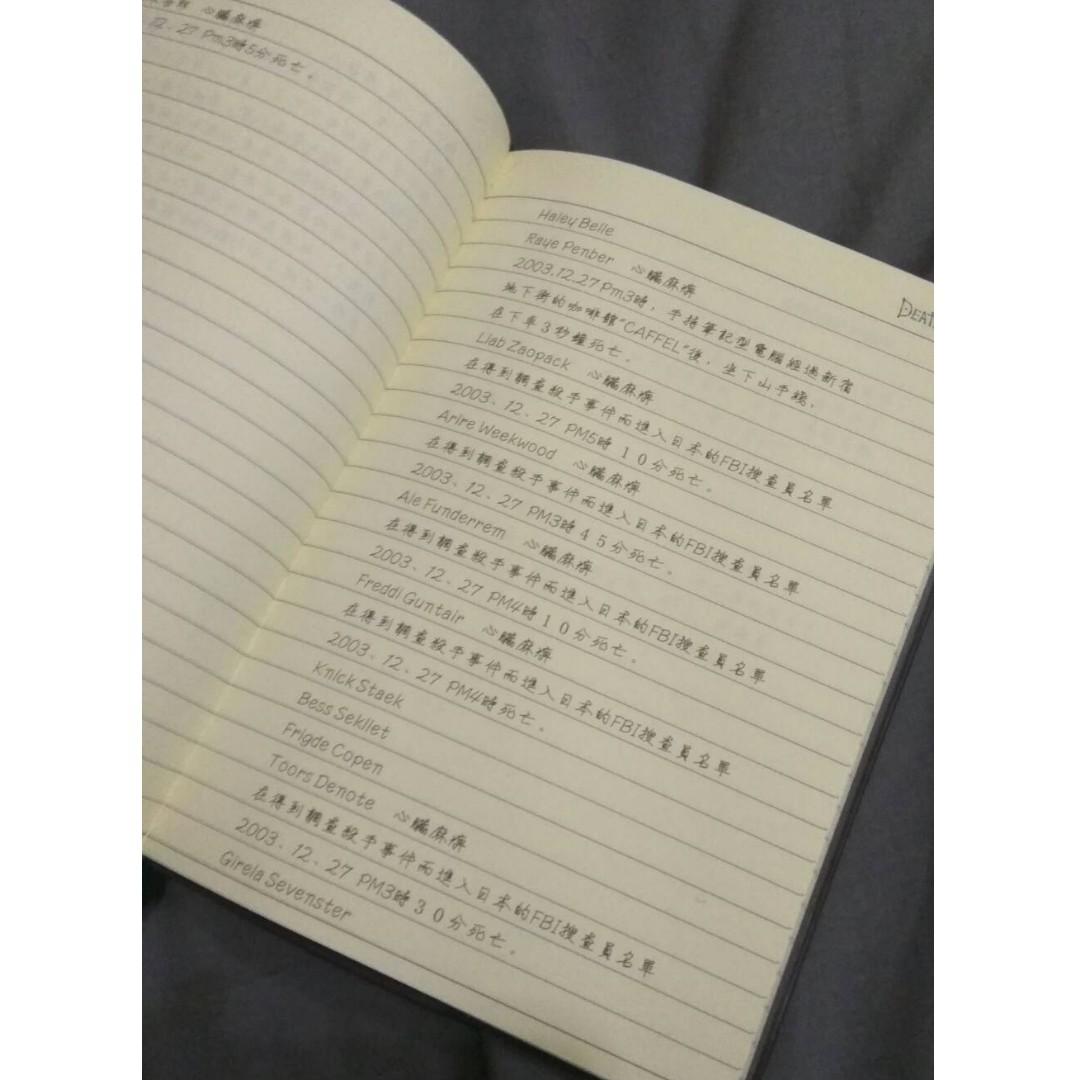 心臟麻痺
12、27 Pm3時5分死亡。
DEAT
Haley Belle
Raye Penber 心臟麻痺
2003.12.27 Pm3時，手持筆記型電腦經過新宿
地下街的咖啡館"CAFFEL"後，坐下山手線，
在下車3秒鐘死亡。
Liab Zaopack 心臟麻痺
在得到調查殺手事件而進入日本的FBI搜查員名單
2003、12、27 PM5時10分死亡。
Arire Weekwood 心臟麻痺
在得到調查殺手事件而進入日本的FBI搜查員名單
2003、12、27 PM3時45分死亡。
Ale Funderrem 心臟麻痺
在得到調查殺手事件而進入日本的FBI搜查員名單
2003、12、27 PM4時10分死亡。
Freddi Guntair 心臟麻痺
在得到調查殺手事件而進入日本的FBI搜查員名單
2003、12、27 PM4時死亡。
Knick Staek
Bess Sekllet
Frigde Copen
Toors Denote 心臟麻痺
在得到調查殺手事件而進入日本的FBI搜查員名單
2003、12、27 PM3時30分死亡。
Girela Sevenster